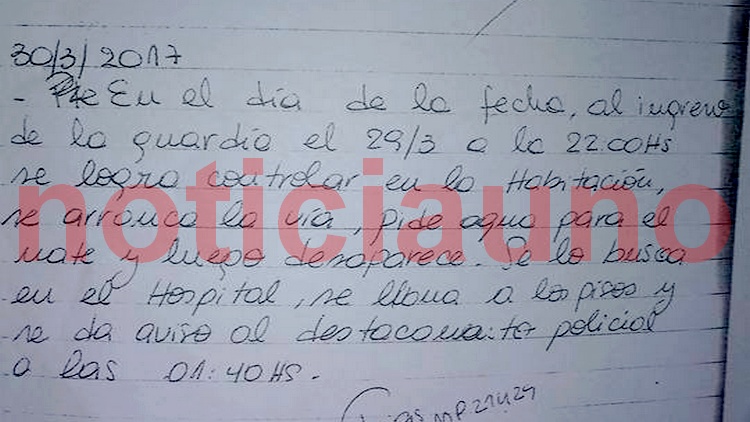 30/3/2017
- En el día de la fecha, al ingreso
de la guardia el 29/3 a la 22:00Hs
se logra controlar en la Habitación,
se arranca la vía, pide agua para el
mate y luego desaparece. Se lo busca
en el Hospital, se llama a los pisos y
se da aviso al destacamento policial
a las 01:40HS.
MP21424
noticiauno